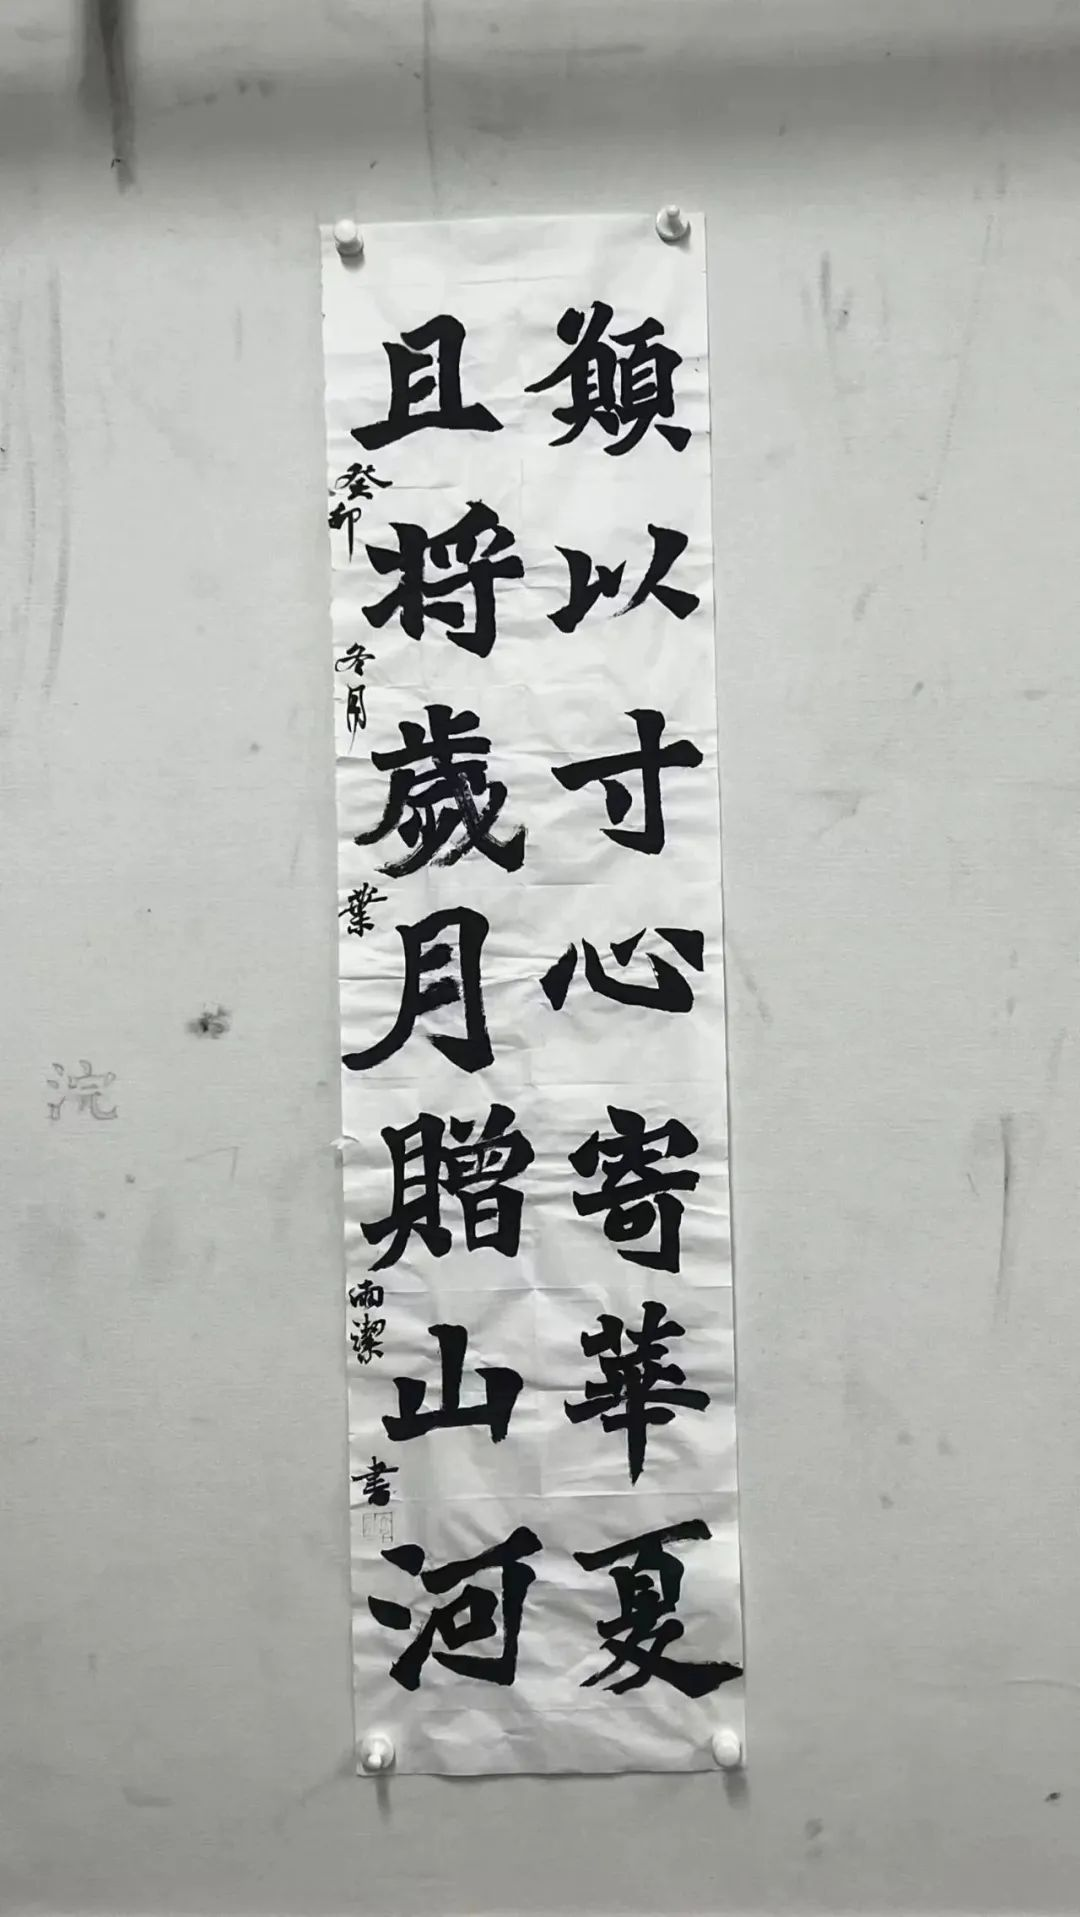 願以寸心寄華夏
且将歲月贈山河
癸卯冬月葉雨潔书
浣